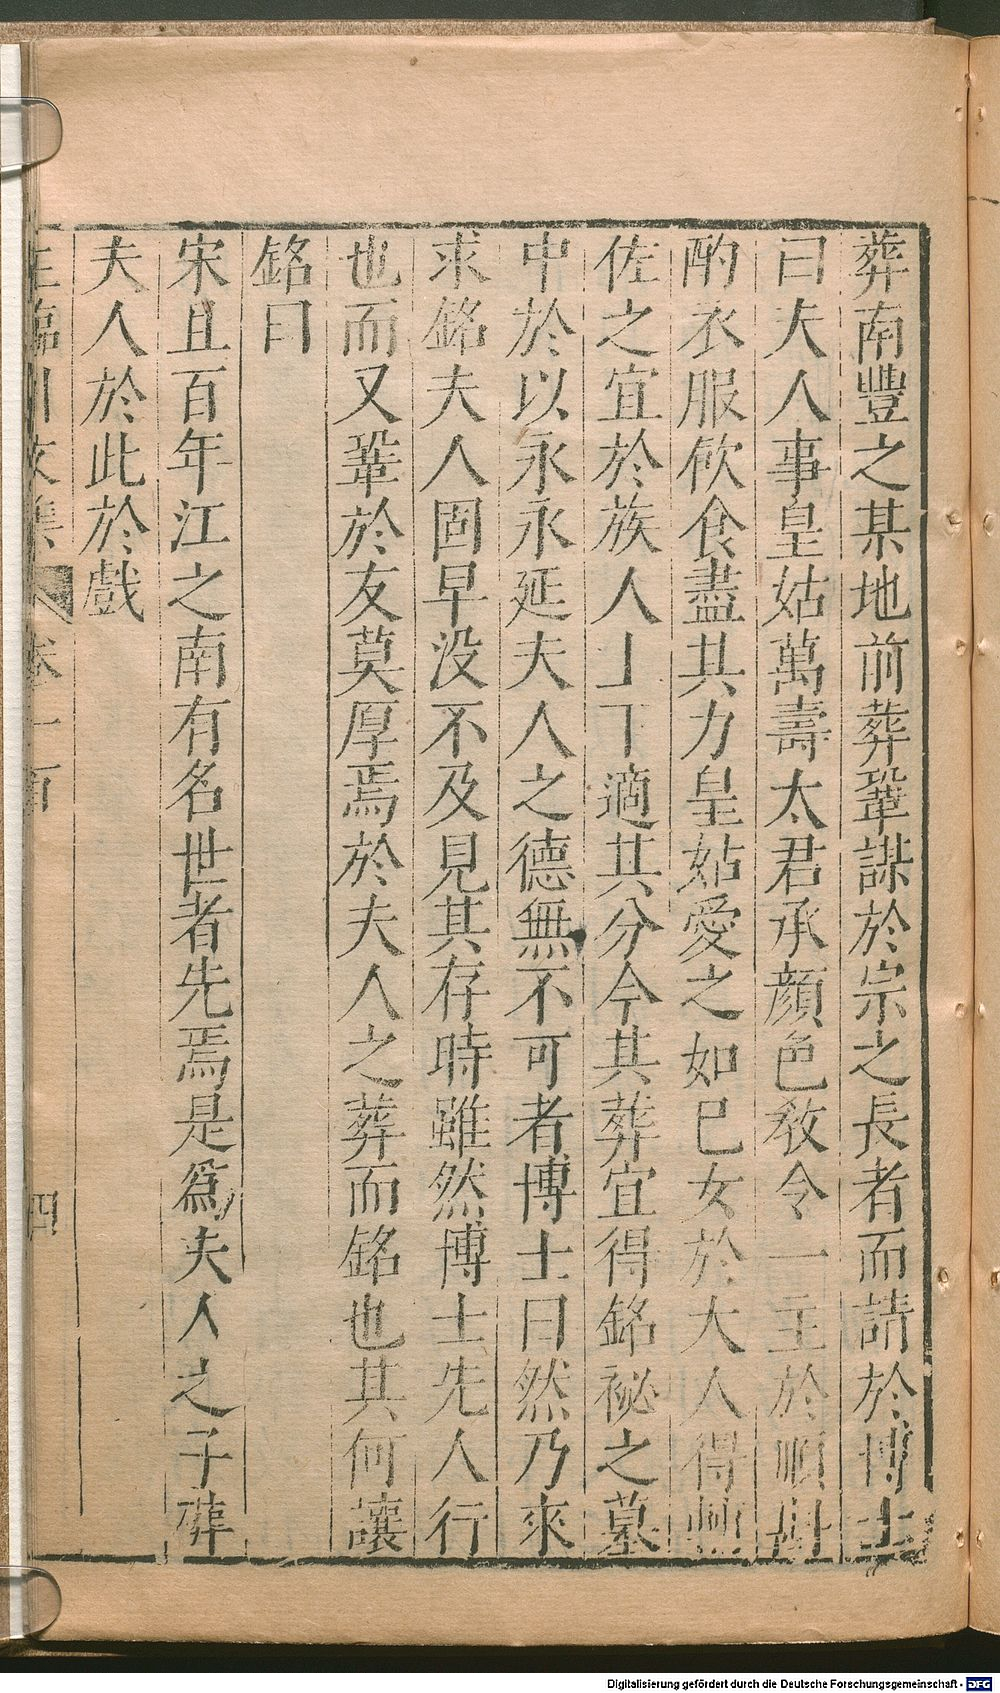 葬南豐之某地前葬鞏謀於宗之長者而請於博士
曰夫人事皇姑萬壽太君承顏色教令一主於順斟
酌衣服飲食盡其力皇姑愛之如己女於大人得輔
佐之宜於族人上下適其分今其葬宜得銘祕之墓
中於以永永延夫人之德無不可者博士曰然乃來
求銘夫人固早没不及見其存時雖然博士先人行
也而又鞏於友莫厚焉於夫人之葬而銘也其何讓
銘曰
宋且百年江之南有名世者先焉是爲夫人之子葬
夫人於此於戲
王臨川文集 卷一百 四
Digitalisierung gefördert durch die Deutsche Forschungsgemeinschaft - DFG